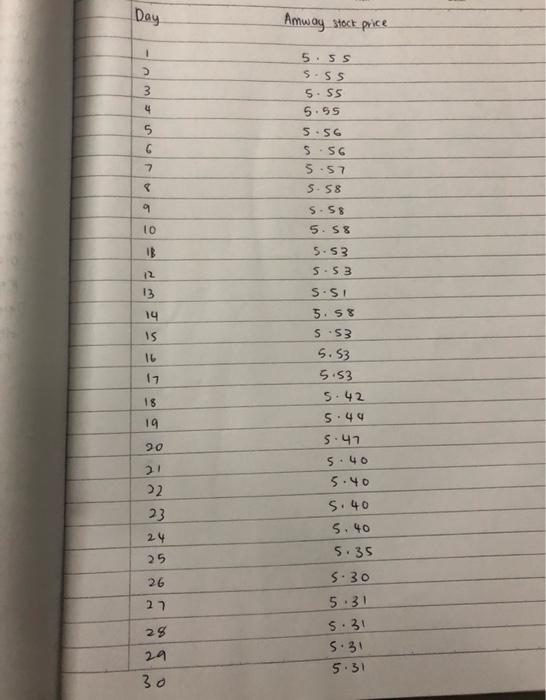 Day Amway stock price
1 5.55
2 5.55
3 5.55
4 5.55
5 5.56
6 5.56
7 5.57
8 5.58
9 5.58
10 5.58
11 5.53
12 5.53
13 5.51
14 5.58
15 5.53
16 5.53
17 5.53
18 5.42
19 5.44
20 5.47
21 5.40
22 5.40
23 5.40
24 5.40
25 5.35
26 5.30
27 5.31
28 5.31
29 5.31
30 5.31